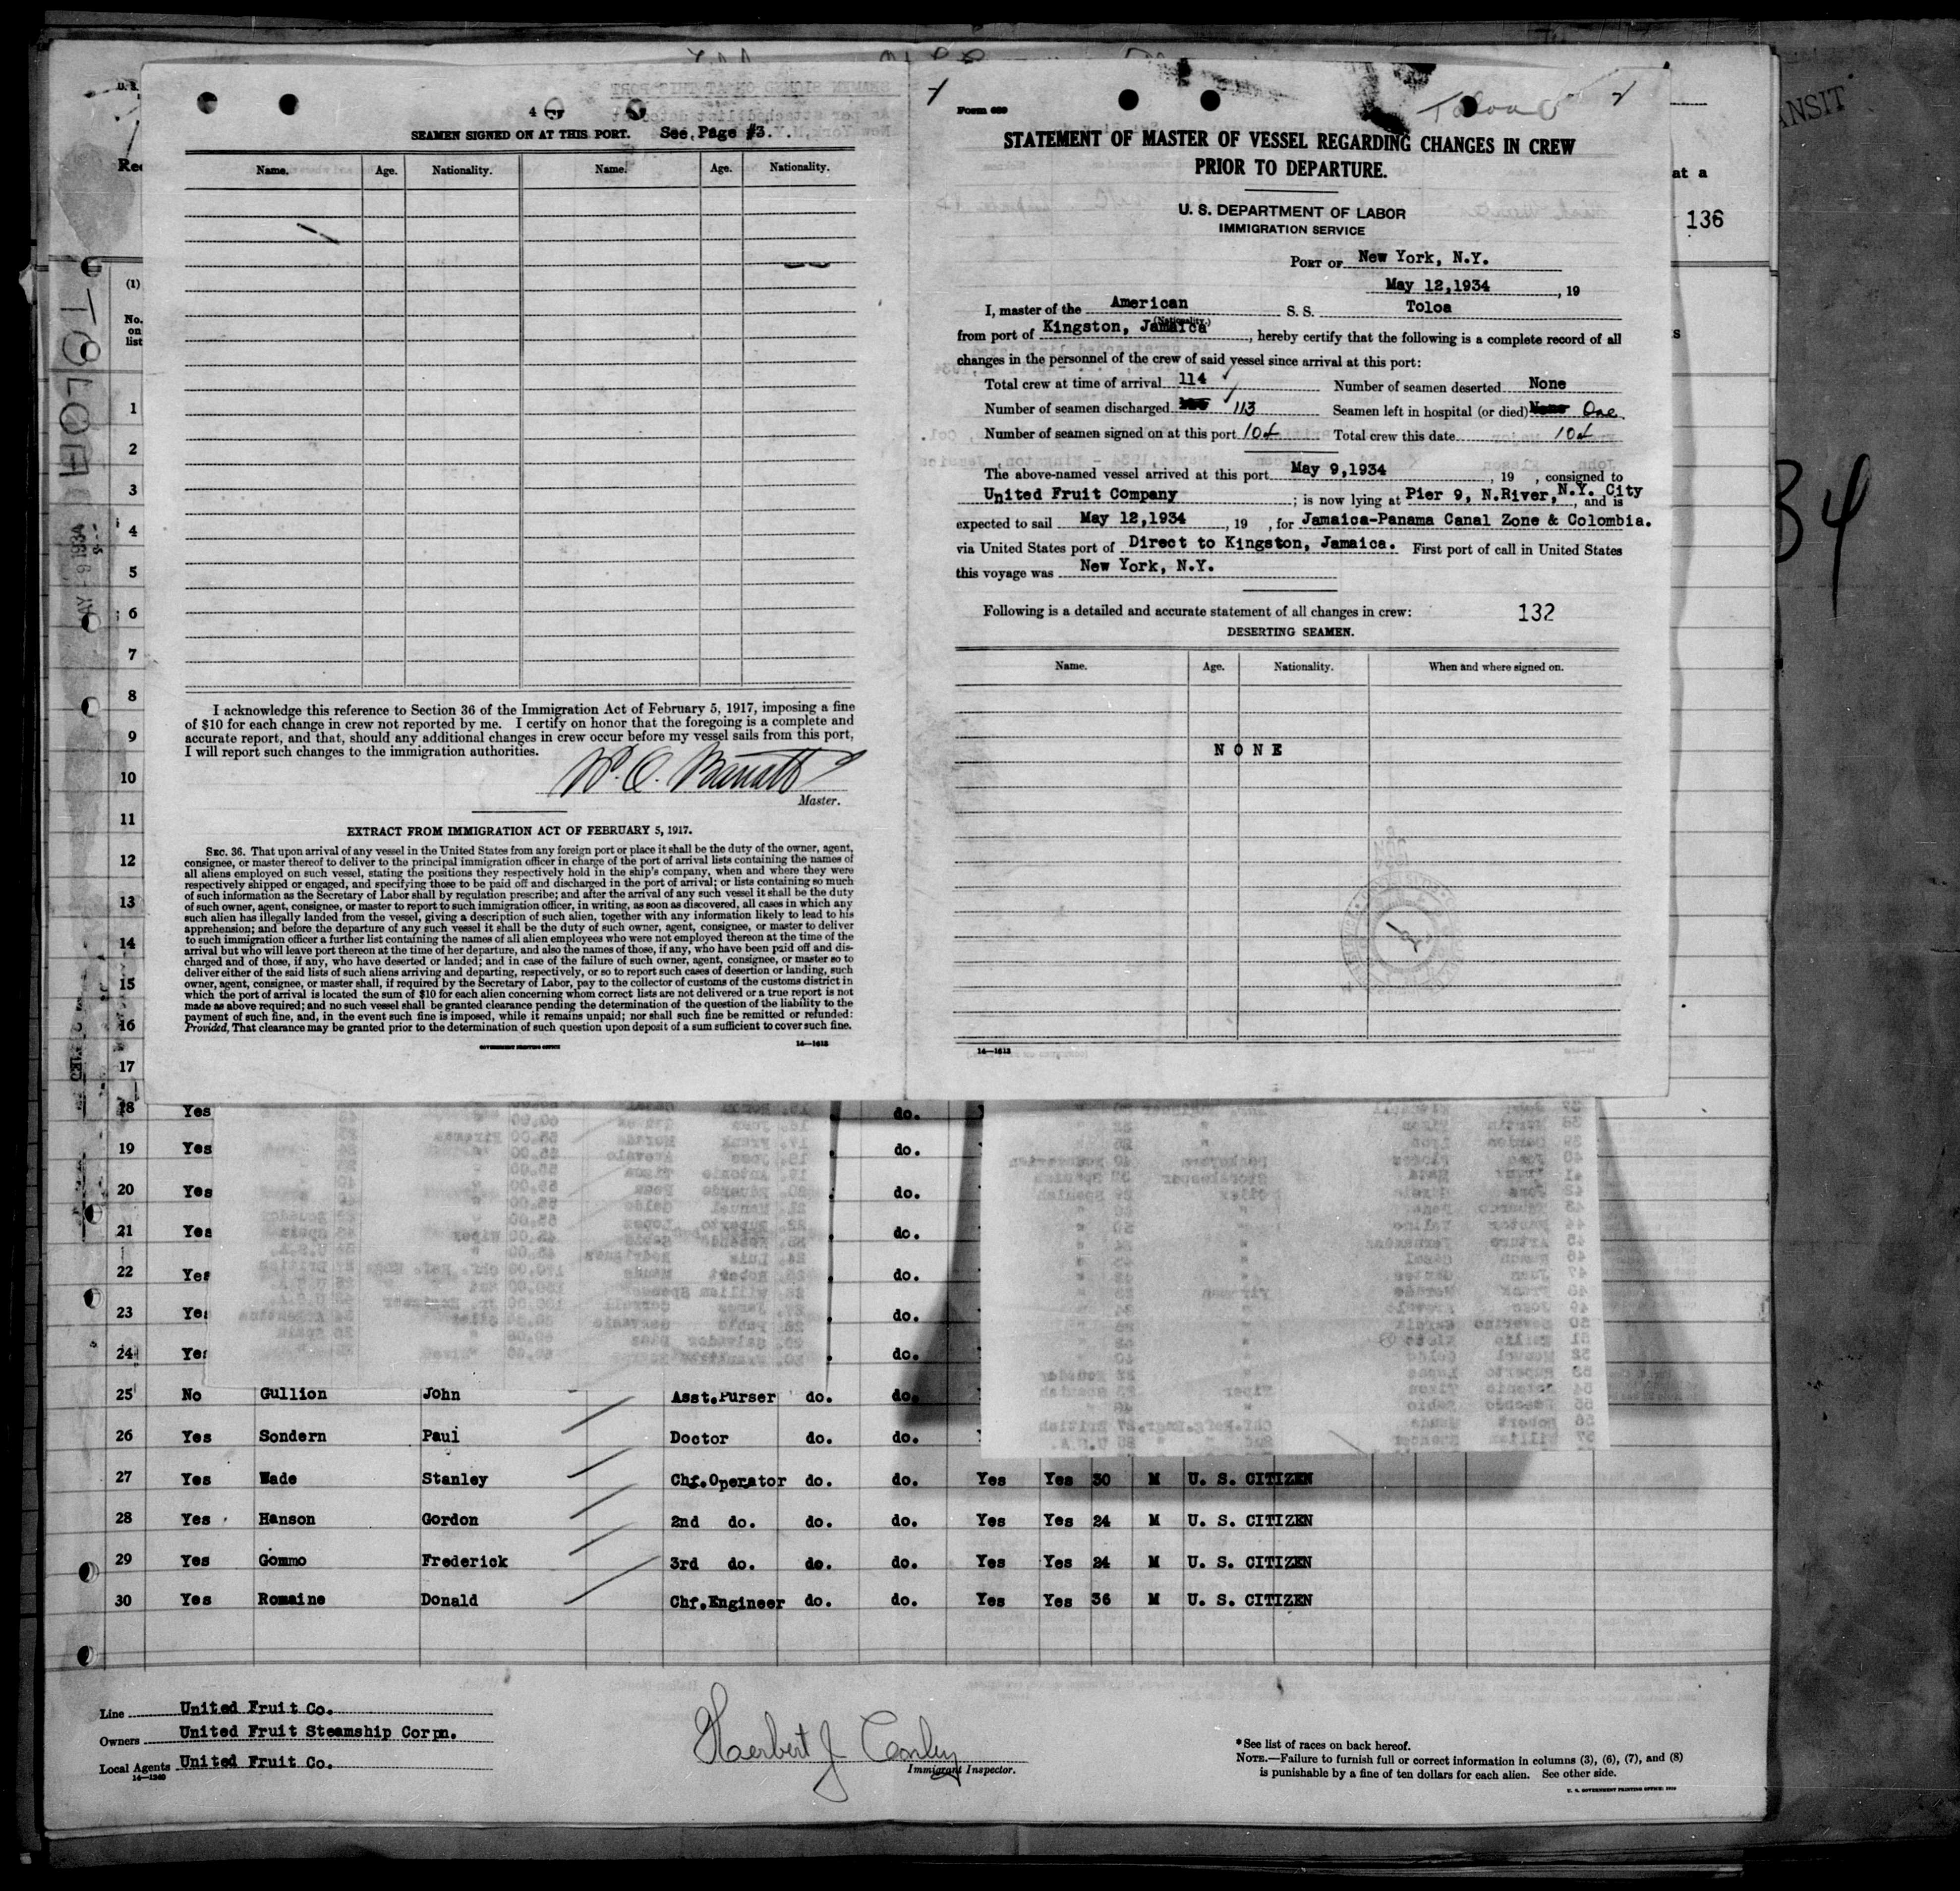 4
SEAMEN SIGNED ON AT THIS PORT. See, Page #3.
Name. Age. Nationality. Name. Age. Nationality.
I acknowledge this reference to Section 36 of the Immigration Act of February 5, 1917, imposing a fine
of $10 for each change in crew not reported by me. I certify on honor that the foregoing is a complete and
accurate report, and that, should any additional changes in crew occur before my vessel sails from this port,
I will report such changes to the immigration authorities.
Master.
EXTRACT FROM IMMIGRATION ACT OF FEBRUARY 5, 1917.
SEC. 36. That upon arrival of any vessel in the United States from any foreign port or place it shall be the duty of the owner, agent,
consignee, or master thereof to deliver to the principal immigration officer in charge of the port of arrival lists containing the names of
all aliens employed on such vessel, stating the positions they respectively hold in the ship's company, when and where they were
respectively shipped or engaged, and specifying those to be paid off and discharged in the port of arrival; or lists containing so much
of such information as the Secretary of Labor shall by regulation prescribe; and after the arrival of any such vessel it shall be the duty
of such owner, agent, consignee, or master to report to such immigration officer, in writing, as soon as discovered, all cases in which any
such alien has illegally landed from the vessel, giving a description of such alien, together with any information likely to lead to his
apprehension; and before the departure of any such vessel it shall be the duty of such owner, agent, consignee, or master to deliver
to such immigration officer a further list containing the names of all alien employees who were not employed thereon at the time of the
arrival but who will leave port thereon at the time of her departure, and also the names of those, if any, who have been paid off and dis-
charged and of those, if any, who have deserted or landed; and in case of the failure of such owner, agent, consignee, or master so to
deliver either of the said lists of such aliens arriving and departing, respectively, or so to report such cases of desertion or landing, such
owner, agent, consignee, or master shall, if required by the Secretary of Labor, pay to the collector of customs of the customs district in
which the port of arrival is located the sum of $10 for each alien concerning whom correct lists are not delivered or a true report is not
made as above required; and no such vessel shall be granted clearance pending the determination of the question of the liability to the
payment of such fine, and, in the event such fine is imposed, while it remains unpaid; nor shall such fine be remitted or refunded:
Provided, That clearance may be granted prior to the determination of such question upon deposit of a sum sufficient to cover such fine.
GOVERNMENT PRINTING OFFICE 14—1613
Form 689 Toloa
STATEMENT OF MASTER OF VESSEL REGARDING CHANGES IN CREW
PRIOR TO DEPARTURE.
U. S. DEPARTMENT OF LABOR
IMMIGRATION SERVICE
PORT OF New York, N.Y.
May 12,1934, 19
I, master of the American S. S. Toloa
(Nationality.)
from port of Kingston, Jamaica, hereby certify that the following is a complete record of all
changes in the personnel of the crew of said vessel since arrival at this port:
Total crew at time of arrival 114 Number of seamen deserted None
Number of seamen discharged 113 Seamen left in hospital (or died) None One
Number of seamen signed on at this port Total crew this date
The above-named vessel arrived at this port May 9,1934, 19 , consigned to
United Fruit Company; is now lying at Pier 9, N.River, N.Y. City, and is
expected to sail May 12,1934, 19 , for Jamaica-Panama Canal Zone & Colombia.
via United States port of Direct to Kingston, Jamaica. First port of call in United States
this voyage was New York, N.Y.
Following is a detailed and accurate statement of all changes in crew: 132
DESERTING SEAMEN.
Name. Age. Nationality. When and where signed on.
NONE
14—1613
ANSIT
at a
136
34
TOLOA
MAY - 9 1934
(1)
No.
on
list
1
2
3
4
5
6
7
8
9
10
11
12
13
14
15
16
17
18 Yes do.
19 Yes do.
20 Yes do.
21 Yes do.
22 Yes do.
23 Yes do.
24 Yes do.
25 No Gullion John Asst.Purser do. do.
26 Yes Sondern Paul Doctor do. do.
27 Yes Wade Stanley Chf.Operator do. do. Yes Yes 30 M U. S. CITIZEN
28 Yes Hanson Gordon 2nd do. do. do. Yes Yes 24 M U. S. CITIZEN
29 Yes Gommo Frederick 3rd do. do. do. Yes Yes 24 M U. S. CITIZEN
30 Yes Romaine Donald Chf.Engineer do. do. Yes Yes 36 M U. S. CITIZEN
Line United Fruit Co.
Owners United Fruit Steamship Corpn.
Local Agents United Fruit Co.
14—1240
Herbert J Conley
Immigrant Inspector.
*See list of races on back hereof.
NOTE.—Failure to furnish full or correct information in columns (3), (6), (7), and (8)
is punishable by a fine of ten dollars for each alien. See other side.